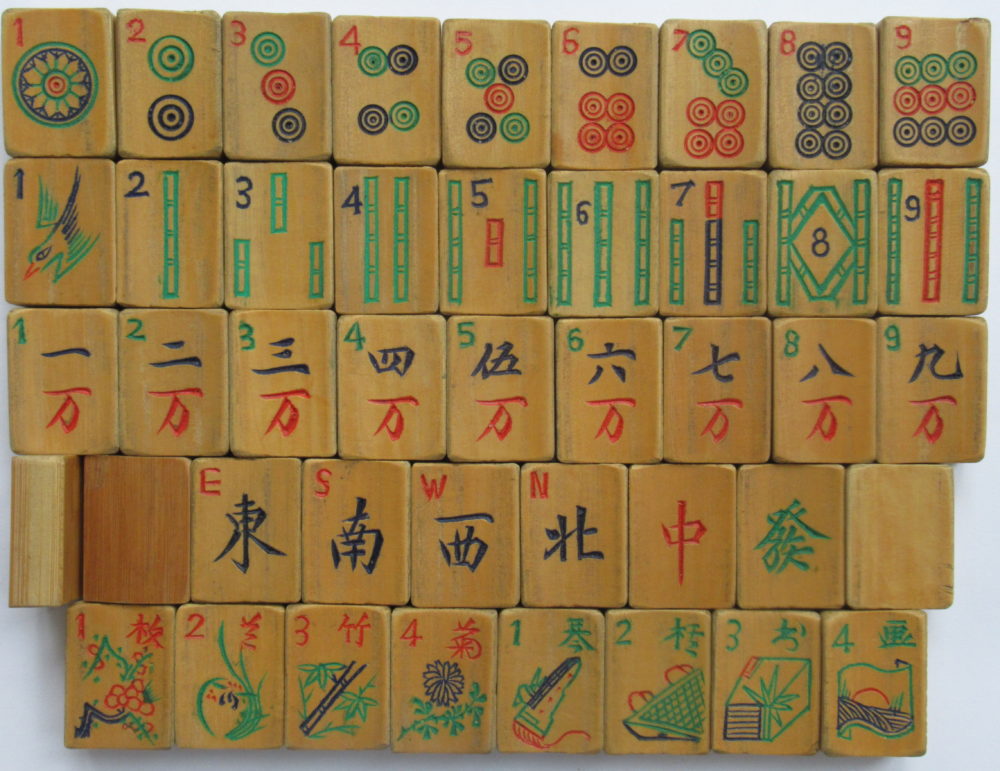 1 2 3 4 5 6 7 8 9
1 2 3 4 5 6 7 8 9
1 2 3 4 5 6 7 8 9
一 二 三 四 伍 六 七 八 九
万 万 万 万 万 万 万 万 万
E S W N
東 南 西 北 中 發
1 梅 2 兰 3 竹 4 菊 1 琴 2 棋 3 书 4 画